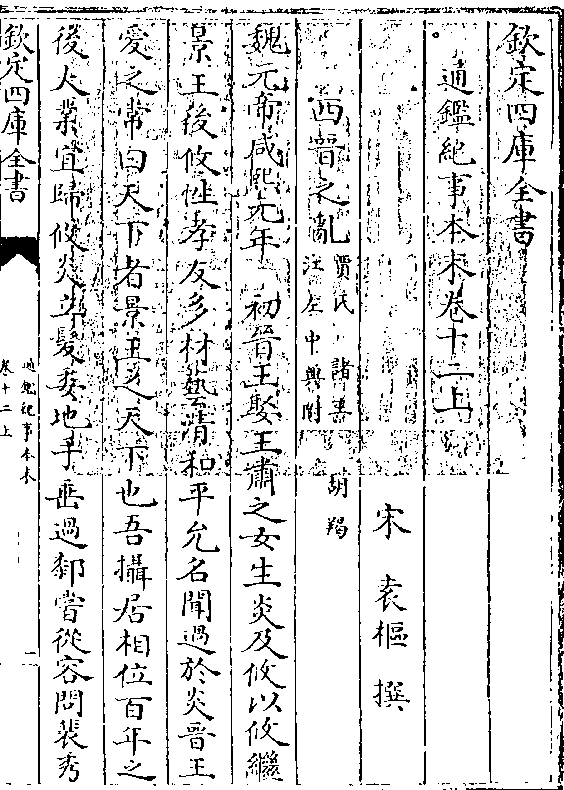 欽定四庫全書
通鑑紀事本末卷十二上
宋 袁樞 撰
西晉之亂 賈氏 諸 胡羯
江左中興附
魏元帝咸熙元年 初晉王娶王肅之女生炎及攸以攸繼
景王後攸性孝友多材藝清和平允名聞過於炎晉王
愛之常曰天下者景王之天下也吾攝居相位百年之
後大業宜歸攸炎立髮委地手垂過䣛嘗從容問裴秀
欽定四庫全書
通鑑紀事本末
卷十二上